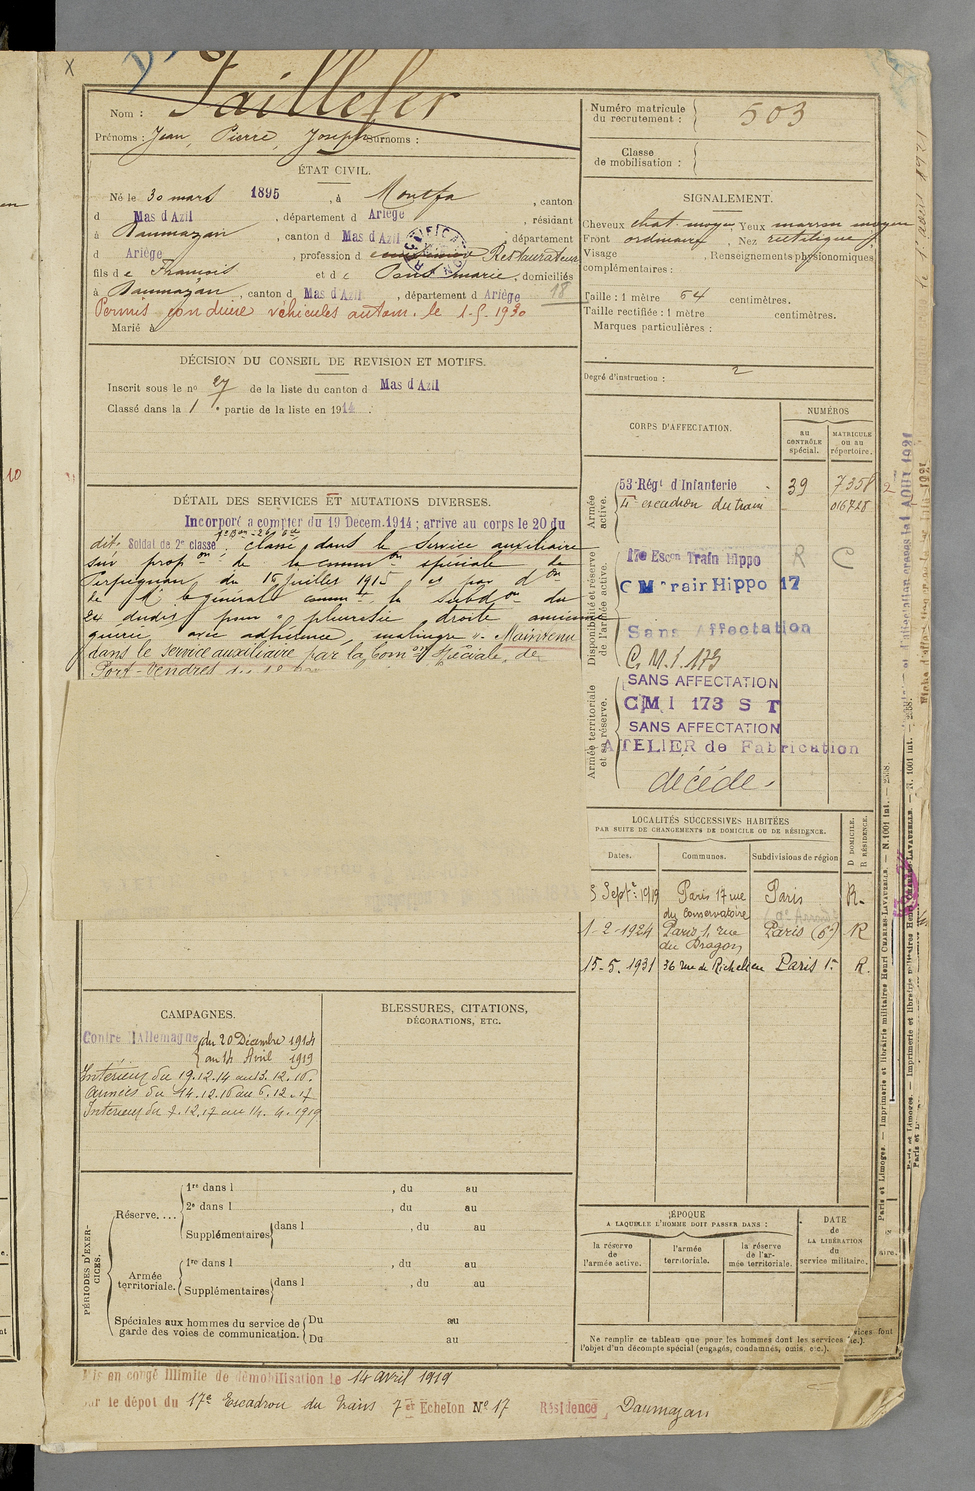 X
Nom : Taillefer
Prénoms : Jean, Pierre, Joseph Surnoms :
Numéro matricule du recrutement : 503
Classe de mobilisation :
ÉTAT CIVIL.
Né le 30 mars 1895, à Montfa, canton
d Mas d Azil, département d Ariège, résidant
à Daumazan, canton d Mas d Azil, département
d Ariège, profession d Restaurateur
fils de François et de Pons marie, domiciliés
à Daumazan, canton d Mas d'Azil, département d Ariège 18
Permis conduire véhicules autom. le 1-5-1930
Marié à
SIGNALEMENT.
Cheveux chat. moyen, Yeux marron moyen
Front ordinaire, Nez rectiligne
Visage , Renseignements physionomiques
complémentaires :
Taille : 1 mètre 64 centimètres.
Taille rectifiée : 1 mètre centimètres.
Marques particulières :
Degré d'instruction : 2
DÉCISION DU CONSEIL DE REVISION ET MOTIFS.
Inscrit sous le no 27 de la liste du canton d Mas d Azil
Classé dans la 1e partie de la liste en 1914.
DÉTAIL DES SERVICES ET MUTATIONS DIVERSES.
Incorporé a compter du 19 Decem. 1914 ; arrive au corps le 20 du
dit. Soldat de 2e classe. Classé dans le service auxiliaire
sur propon de la common spéciale de
Perpignan, du 16 juillet 1915 et par don
de M. le général commt la subdon du
24 dudit pour " pleurésie droite ancienne
guérie avec adhérence, malingre ". Maintenu
dans le service auxiliaire par la Comon Spéciale, de
Port-Vendres
CORPS D'AFFECTATION.
NUMÉROS
au contrôle spécial.
matricule ou au répertoire.
Armée active.
53e Régt d'Infanterie 39 7358
escadron du train 016728
Disponibilité et réserve de l'armée active.
17e Escon Train Hippo R C
C M Train Hippo 17
Sans Affectation
C. M. I. 173
Armée territoriale et sa réserve.
SANS AFFECTATION
CMI 173 S T
SANS AFFECTATION
ATELIER de Fabrication
décédé.
LOCALITÉS SUCCESSIVES HABITÉES
PAR SUITE DE CHANGEMENTS DE DOMICILE OU DE RÉSIDENCE.
Dates. Communes. Subdivisions de région
D DOMICILE.
R RÉSIDENCE.
5 Septe 1919 Paris 17 rue du Conservatoire Paris R.
1-2-1924 Paris 1, rue du Dragon Paris (6e) R
15-5.1931 36 rue de Richelieu Paris 1er R.
CAMPAGNES.
Contre l'Allemagne du 20 Décembre 1914
au 14 Avril 1919
Intérieur du 19.12.14 au 13.12.16.
Armées du 14.12.16 au 6.12.17
Intérieur du 7.12.17 au 14.4.1919
BLESSURES, CITATIONS,
DÉCORATIONS, ETC.
PÉRIODES D'EXERCICES.
Réserve....
1re dans l , du au
2e dans l , du au
Supplémentaires dans l , du au
Armée territoriale.
1re dans l , du au
Supplémentaires dans l , du au
Spéciales aux hommes du service de garde des voies de communication.
Du au
Du au
ÉPOQUE
A LAQUELLE L'HOMME DOIT PASSER DANS :
la réserve de l'armée active.
l'armée territoriale.
la réserve de l'armée territoriale.
DATE de LA LIBÉRATION du service militaire.
Ne remplir ce tableau que pour les hommes dont les services font
l'objet d'un décompte spécial (engagés, condamnés, omis, etc.).
Mis en congé illimité de démobilisation le 14 avril 1919
par le dépot du 17e Escadron du train 7e Echelon No 17 Résidence Daumazan
Paris et Limoges. — Imprimerie et librairie militaires Henri CHARLES-LAVAUZELLE. — N. 1001 int. — 2538.